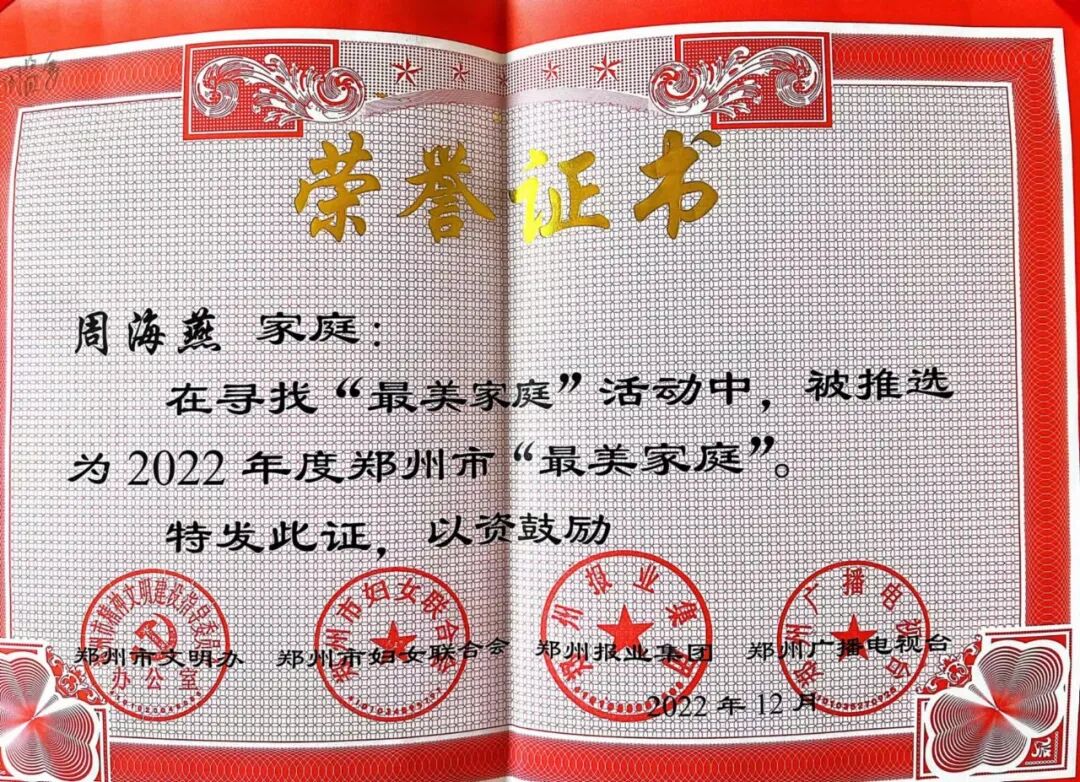 荣誉证书
周海燕 家庭：
在寻找“最美家庭”活动中，被推选
为2022年度郑州市“最美家庭”。
特发此证，以资鼓励
郑州市文明办 郑州市妇女联合会 郑州报业集团 郑州广播电视台
办公室
郑州市妇女联合会
郑州报业集团
郑州广播电视台
2022年12月